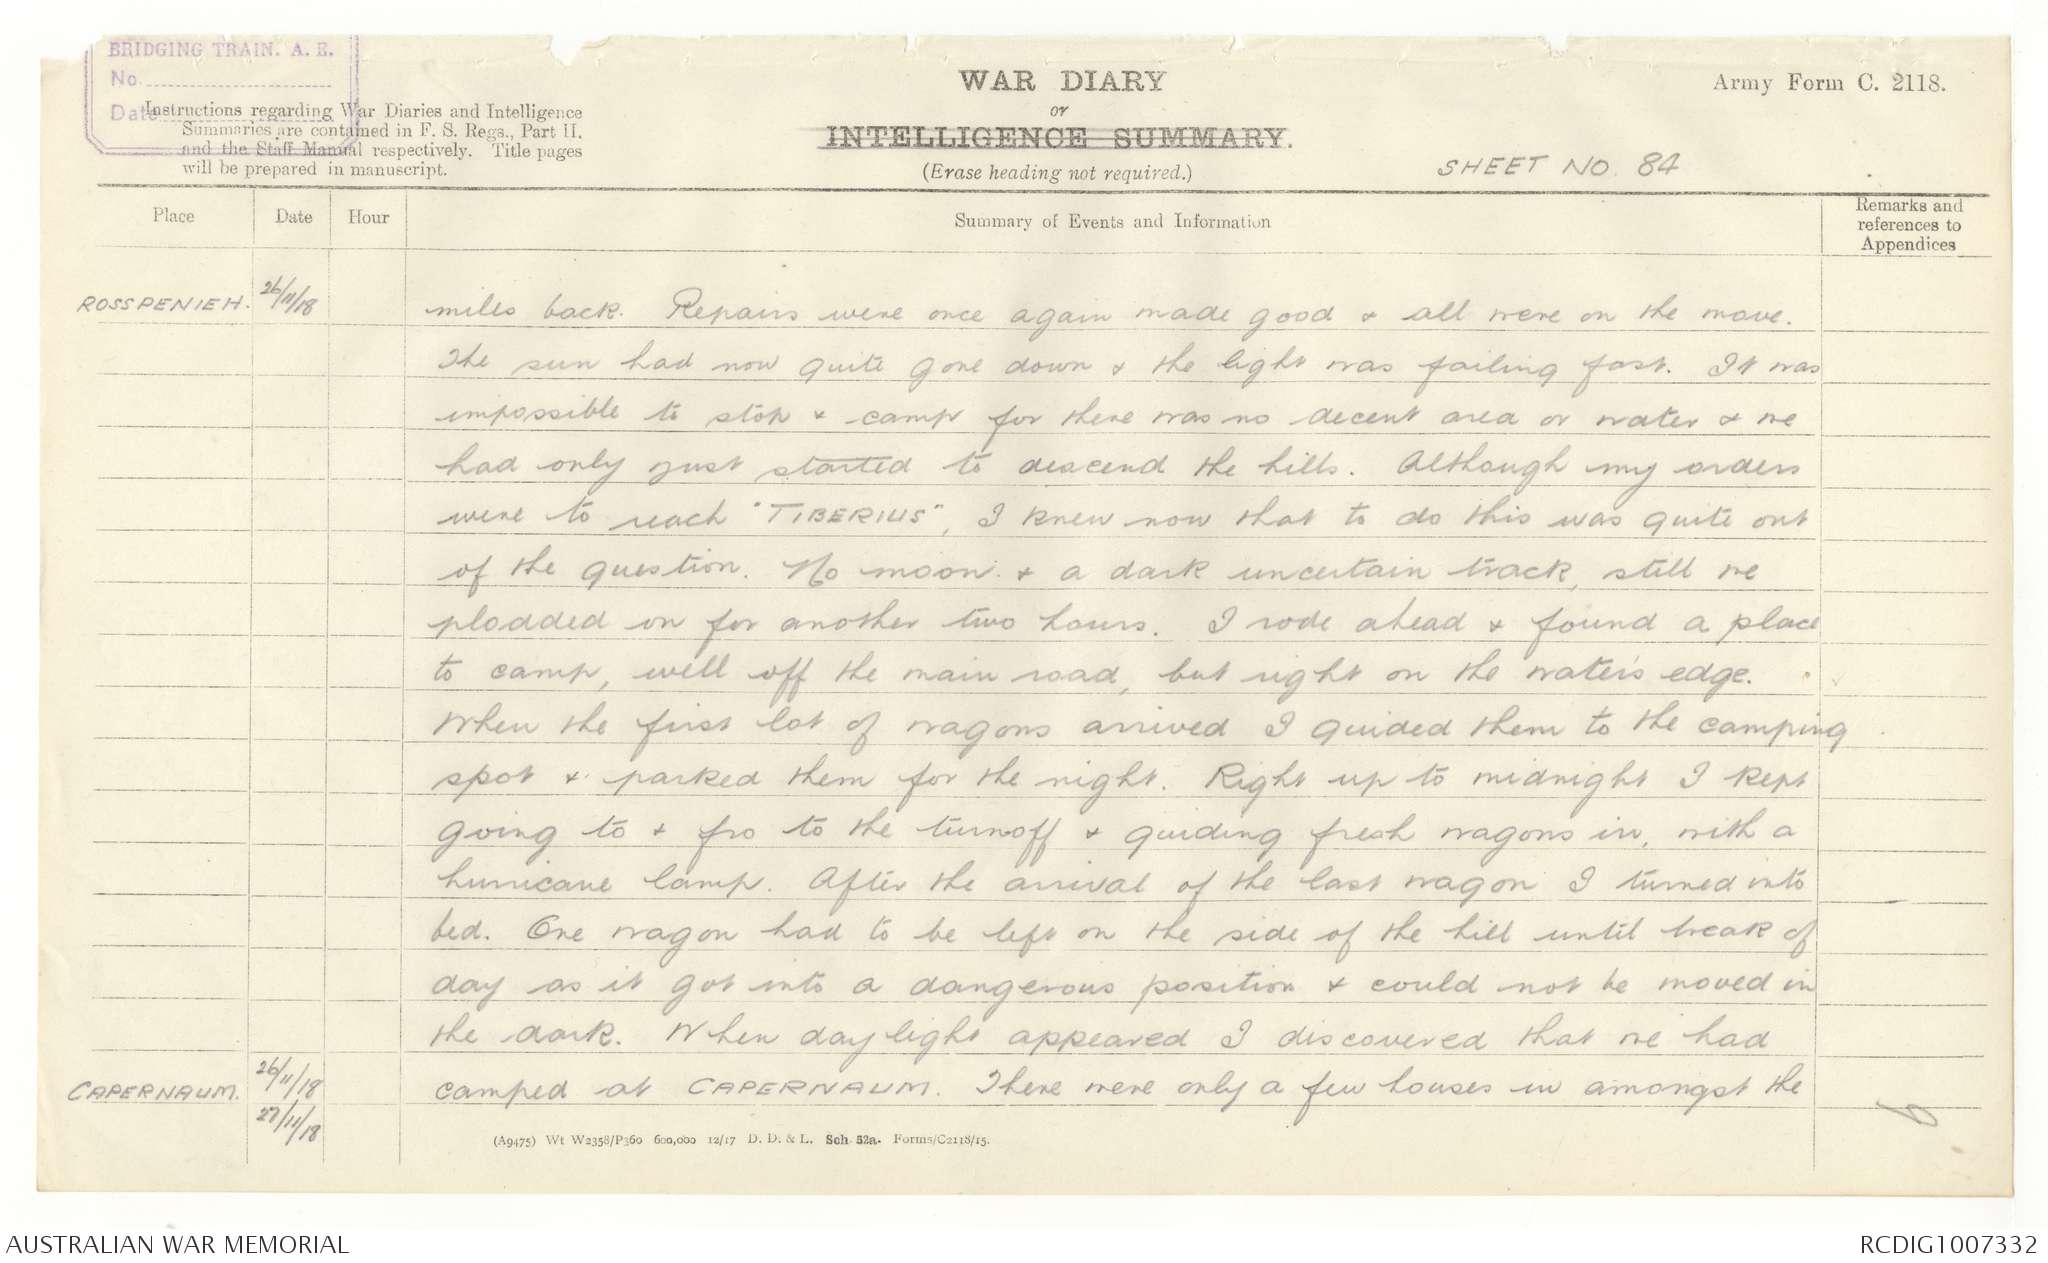 BRIDGING TRAIN. A. E.
No.
Date
Instructions regarding War Diaries and Intelligence
Summaries are contained in F. S. Regs., Part II.
and the Staff Manual respectively. Title pages
will be prepared in manuscript.
WAR DIARY
or
INTELLIGENCE SUMMARY.
(Erase heading not required.)
Army Form C. 2118.
SHEET NO. 84
Place Date Hour Summary of Events and Information Remarks and references to Appendices
ROSSPENIEH. 26/11/18 miles back. Repairs were once again made good & all were on the move.
The sun had now quite gone down & the light was failing fast. It was
impossible to stop & camp for there was no decent area or water & we
had only just started to descend the hills. Although my orders
were to reach "TIBERIUS", I knew now that to do this was quite out
of the question. No moon & a dark uncertain track, still we
plodded on for another two hours. I rode ahead & found a place
to camp, well off the main road, but right on the water's edge.
When the first lot of wagons arrived I guided them to the camping
spot & parked them for the night. Right up to midnight I kept
going to & fro to the turnoff & guiding fresh wagons in, with a
hurricane lamp. After the arrival of the last wagon I turned into
bed. One wagon had to be left on the side of the hill until break of
day as it got into a dangerous position & could not be moved in
the dark. When daylight appeared I discovered that we had
CAPERNAUM. 26/11/18 camped at CAPERNAUM. There were only a few houses in amongst the
27/11/18
(A9475) Wt W2358/P360 600,000 12/17 D. D. & L. Sch 52a. Forms/C2118/15.
AUSTRALIAN WAR MEMORIAL
RCDIG1007332